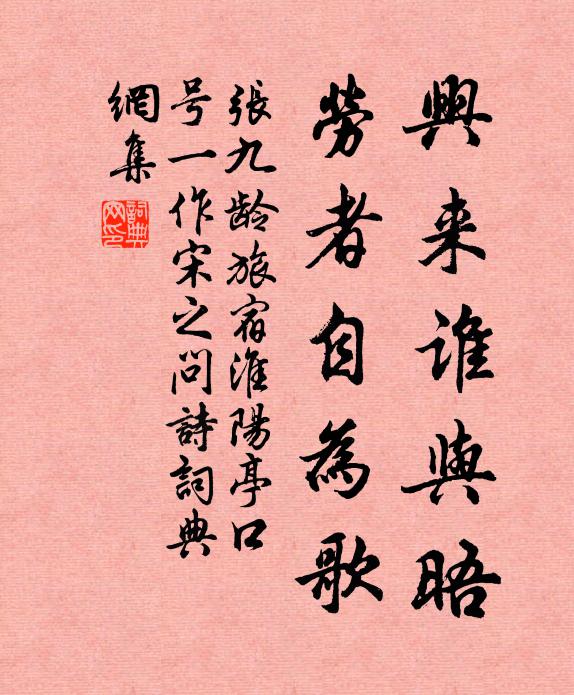 興来誰與晤
勞者自為歌
張九齡旅宿淮陽亭口
号一作宋之问詩詞典
網集
詩詞典網印